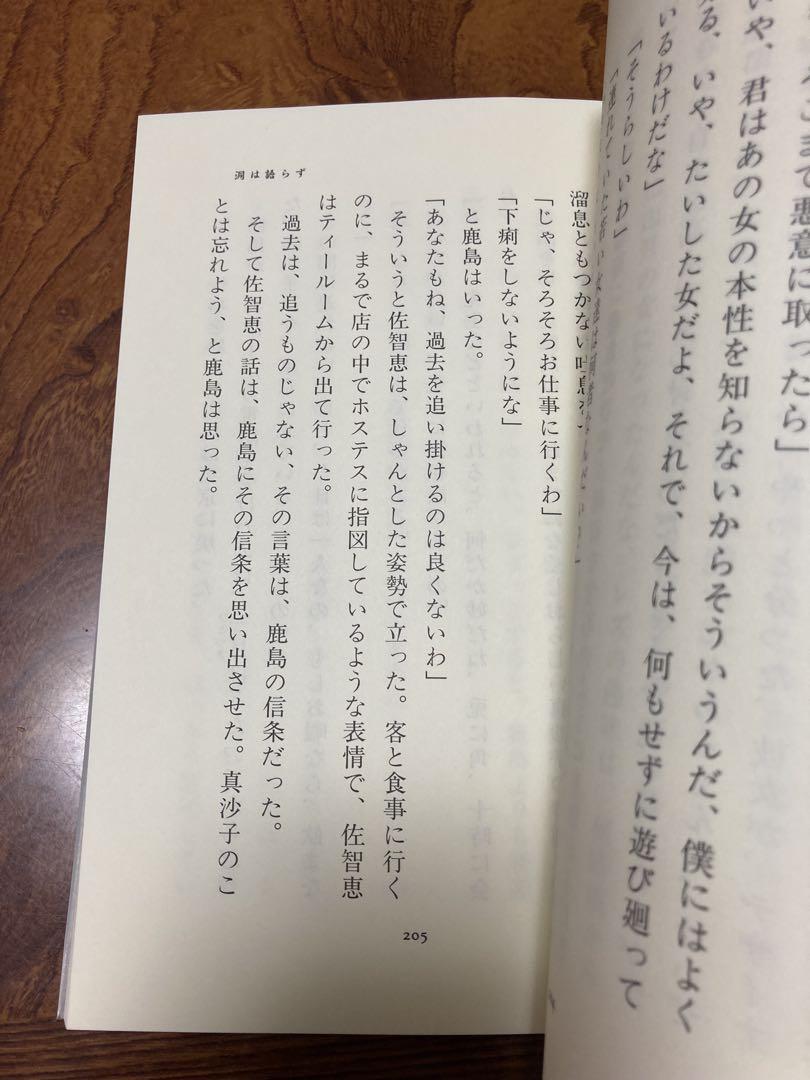 こまで悪意に取ったら」
いや、君はあの女の本性を知らないからそういうんだ、僕にはよく
る、いや、たいした女だよ、それで、今は、何もせずに遊び廻って
いるわけだな」
「そうらしいわ」
洞は語らず
溜息ともつかない吐息を
「じゃ、そろそろお仕事に行くわ」
「下痢をしないようにな」
と鹿島はいった。
「あなたもね、過去を追い掛けるのは良くないわ」
そういうと佐智恵は、しゃんとした姿勢で立った。客と食事に行く
のに、まるで店の中でホステスに指図しているような表情で、佐智恵
はティールームから出て行った。
過去は、追うものじゃない、その言葉は、鹿島の信条だった。
そして佐智恵の話は、鹿島にその信条を思い出させた。真沙子のこ
とは忘れよう、と鹿島は思った。
205